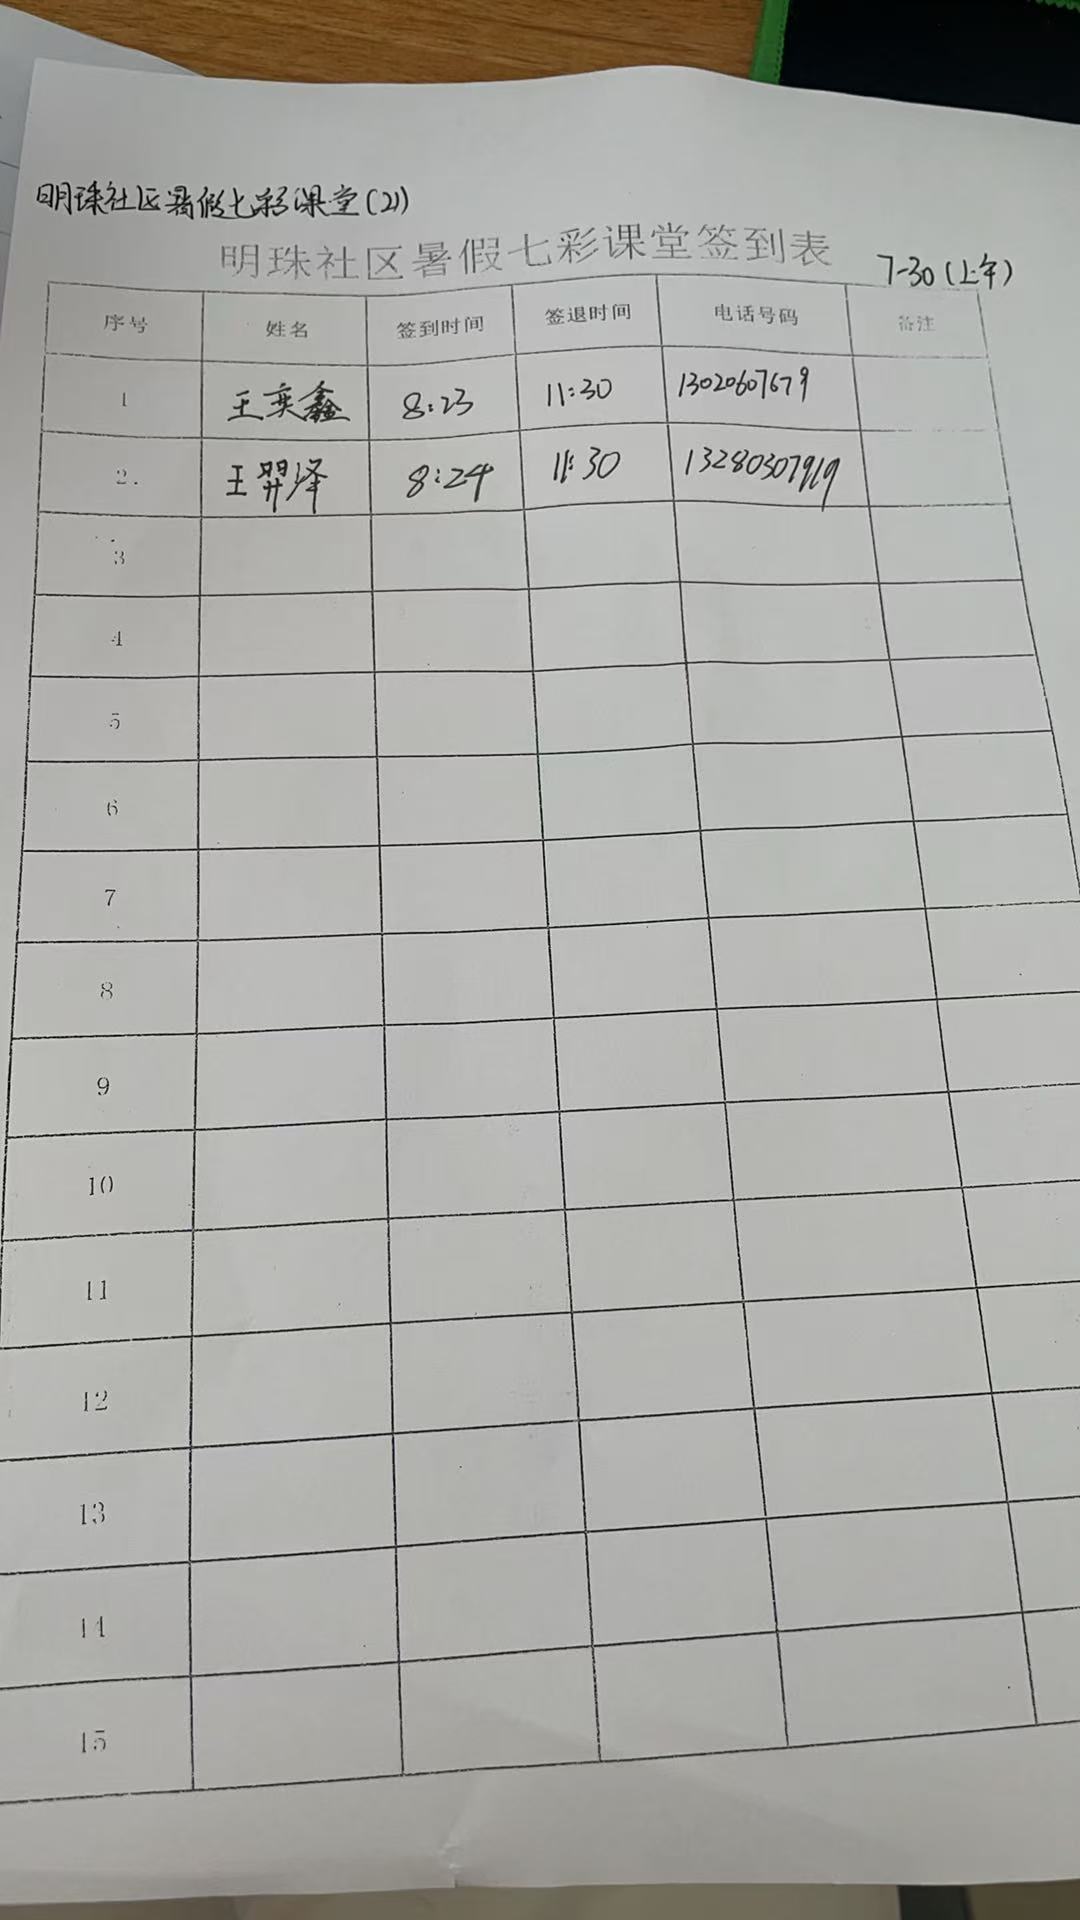 明珠社区暑假七彩课堂(21)
明珠社区暑假七彩课堂签到表
7-30(上午)
序号 姓名 签到时间 签退时间 电话号码 备注
1 王奕鑫 8:23 11:30 13020607679
2. 王羿泽 8:24 11:30 13280307919
3
4
5
6
7
8
9
10
11
12
13
14
15